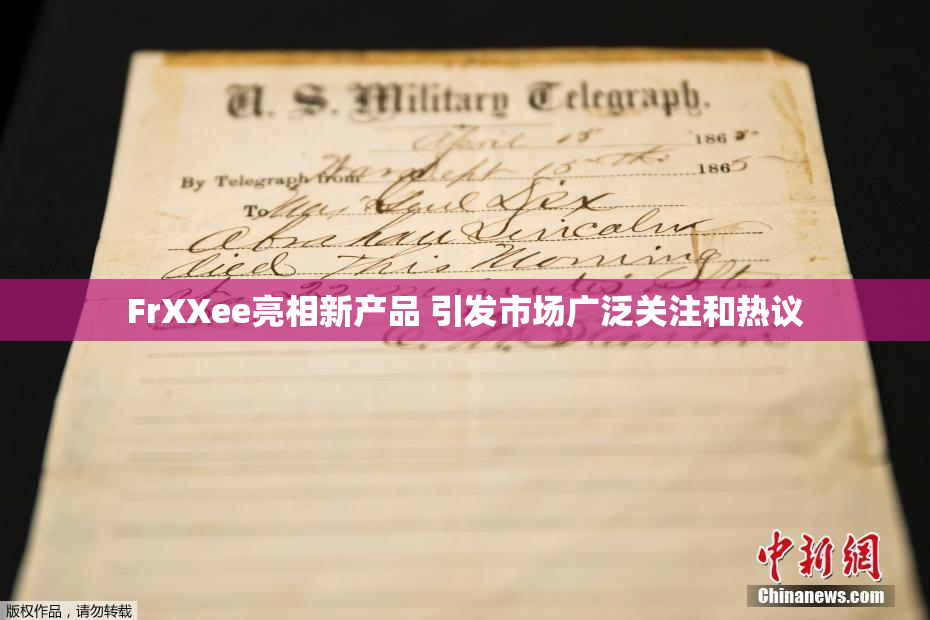 U. S. Military Telegraph.
April 15 1865
By Telegraph from War Dept 15th 1865
To Maj Genl Dix
Abraham Lincoln
died This Morning
at 22 minutes after
FrXXee亮相新产品 引发市场广泛关注和热议
E. M. Stanton
中新网
Chinanews.com
版权作品，请勿转载